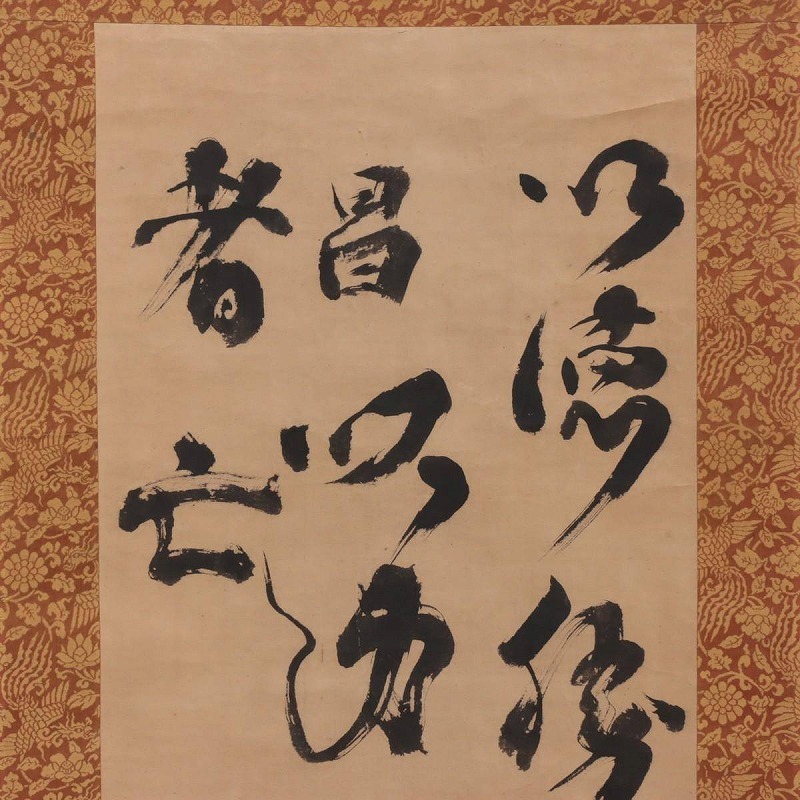 以徳勝
昌以力
者亡